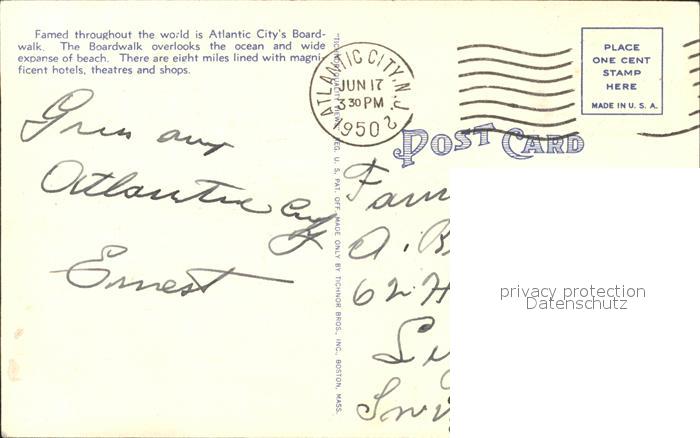 Famed throughout the world is Atlantic City's Board-
walk. The Boardwalk overlooks the ocean and wide
expanse of beach. There are eight miles lined with magni-
ficent hotels, theatres and shops.
ATLANTIC CITY, N.J.
JUN 17
3 30 PM
1950
2
PLACE
ONE CENT
STAMP
HERE
MADE IN U. S. A.
POST CARD
Gruss aus
Atlantic City
Ernest
REG. U. S. PAT. OFF. MADE ONLY BY TICHNOR BROS., INC., BOSTON, MASS.
Fam
A. B
62 H
privacy protection
Datenschutz